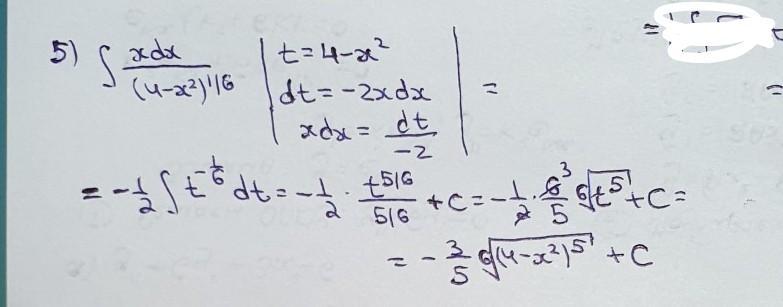 5) ∫ xdx / (4-x²)^1/6 | t = 4-x² | =
dt = -2xdx
xdx = dt / -2
= -1/2 ∫ t^-1/6 dt = -1/2 · t^5/6 / 5/6 + C = -1/2 · 6^3 / 5 ⁶√t⁵ + C =
= -3/5 ⁶√(4-x²)⁵ + C